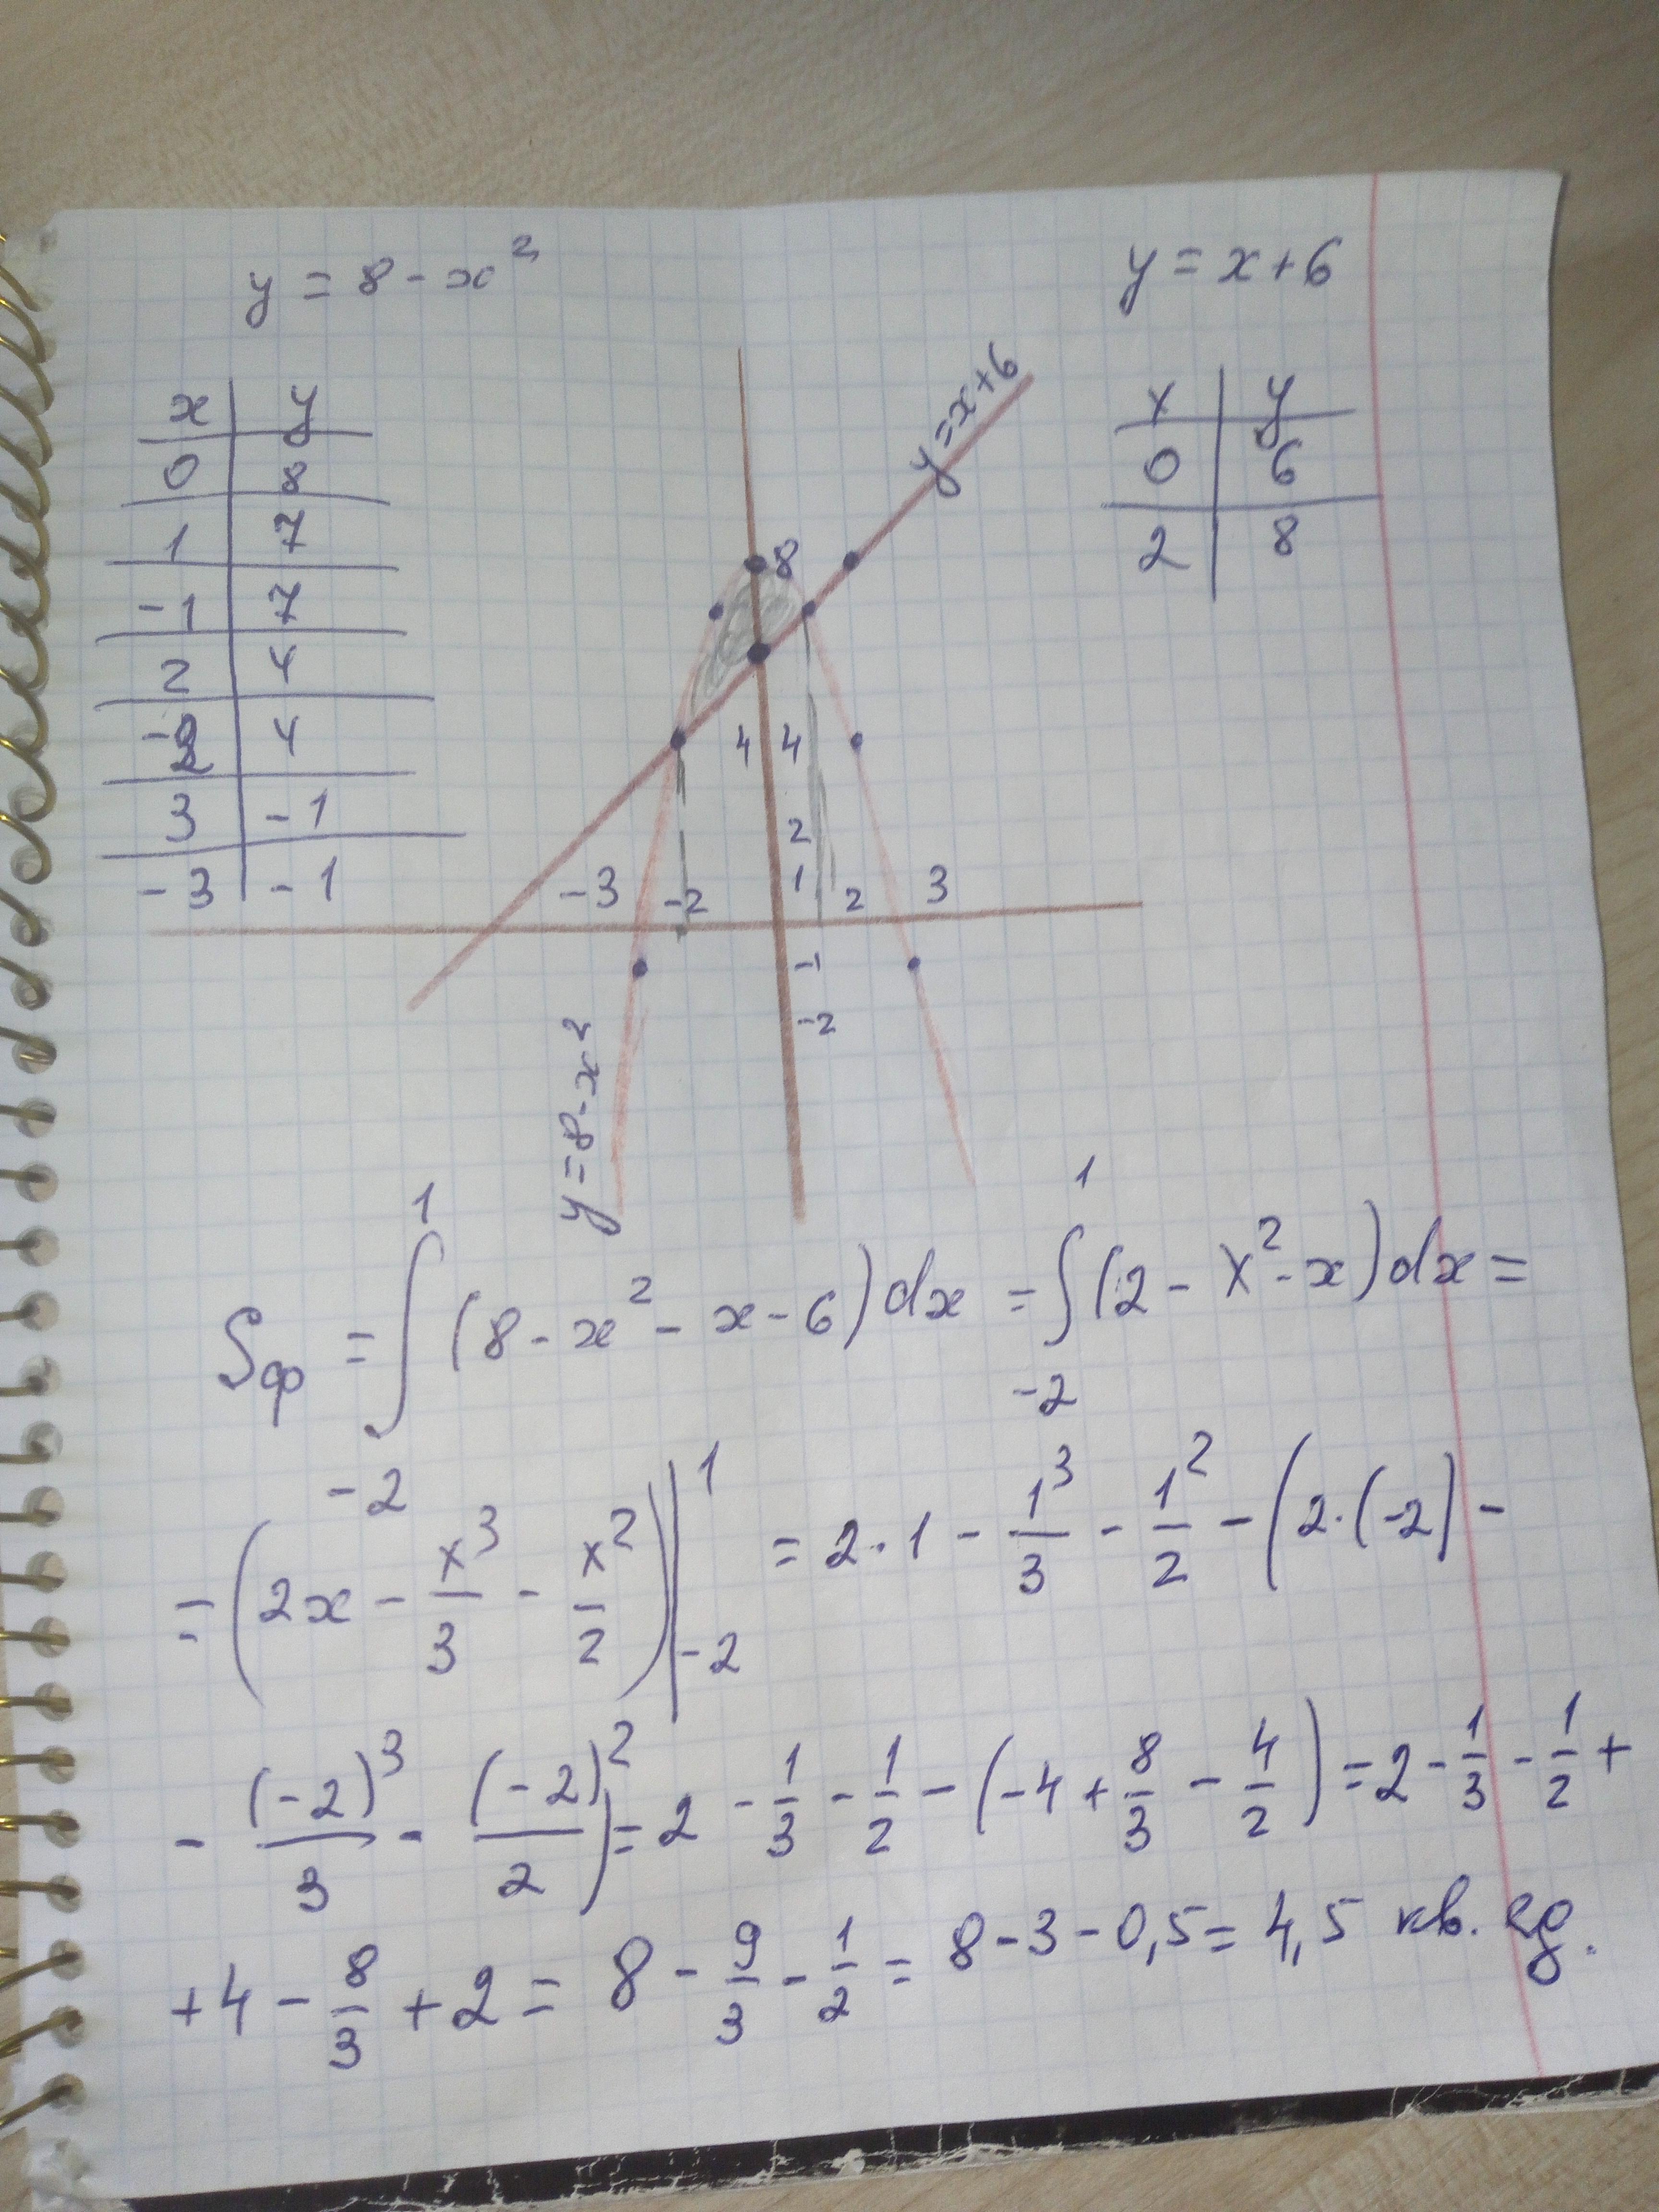 y = 8 - x²
y = x + 6
x | y
0 | 8
1 | 7
-1 | 7
2 | 4
-2 | 4
3 | -1
-3 | -1
x | y
0 | 6
2 | 8
y = x + 6
8
4 4
2
1
-3 -2 2 3
-1
-2
y = 8 - x²
Sф = ∫₋₂¹ (8 - x² - x - 6) dx = ∫₋₂¹ (2 - x² - x) dx =
= (2x - x³/3 - x²/2) |₋₂¹ = 2 · 1 - 1³/3 - 1²/2 - (2 · (-2) -
- (-2)³/3 - (-2)²/2) = 2 - 1/3 - 1/2 - (-4 + 8/3 - 4/2) = 2 - 1/3 - 1/2 +
+ 4 - 8/3 + 2 = 8 - 9/3 - 1/2 = 8 - 3 - 0,5 = 4,5 кв. ед.